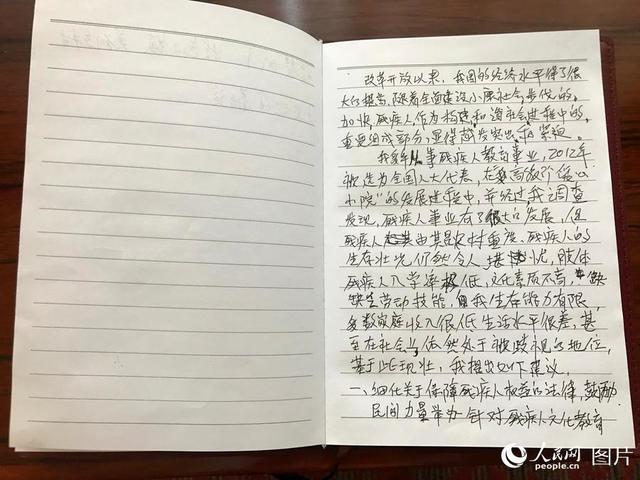 改革开放以来，我国的经济水平得了很
大的提高，随着全面建设小康社会步伐的
加快，残疾人作为构建和谐社会进程中的
重要组成部分，显得越发突出和紧迫。
我多年从事残疾人教育事业，2012年
被选为全国人大代表，在
小院"的发展进程中，并经过我之调查
发现，残疾人事业有了很大的发展，但
残疾人尤其是农村重度残疾人的
生存状况仍然令人堪忧，肢体
残疾人入学率极低，文化素质不高，缺
缺乏劳动技能，自我生存能力有限，
多数家庭收入很低生活水平很差，甚
至在社会上依然处于被歧视的地位，
基于此现状，我提出如下建议，
一、细化关于保障残疾人权益的法律，鼓励
民间力量举办针对残疾人文化教育
人民网 图片
people.cn